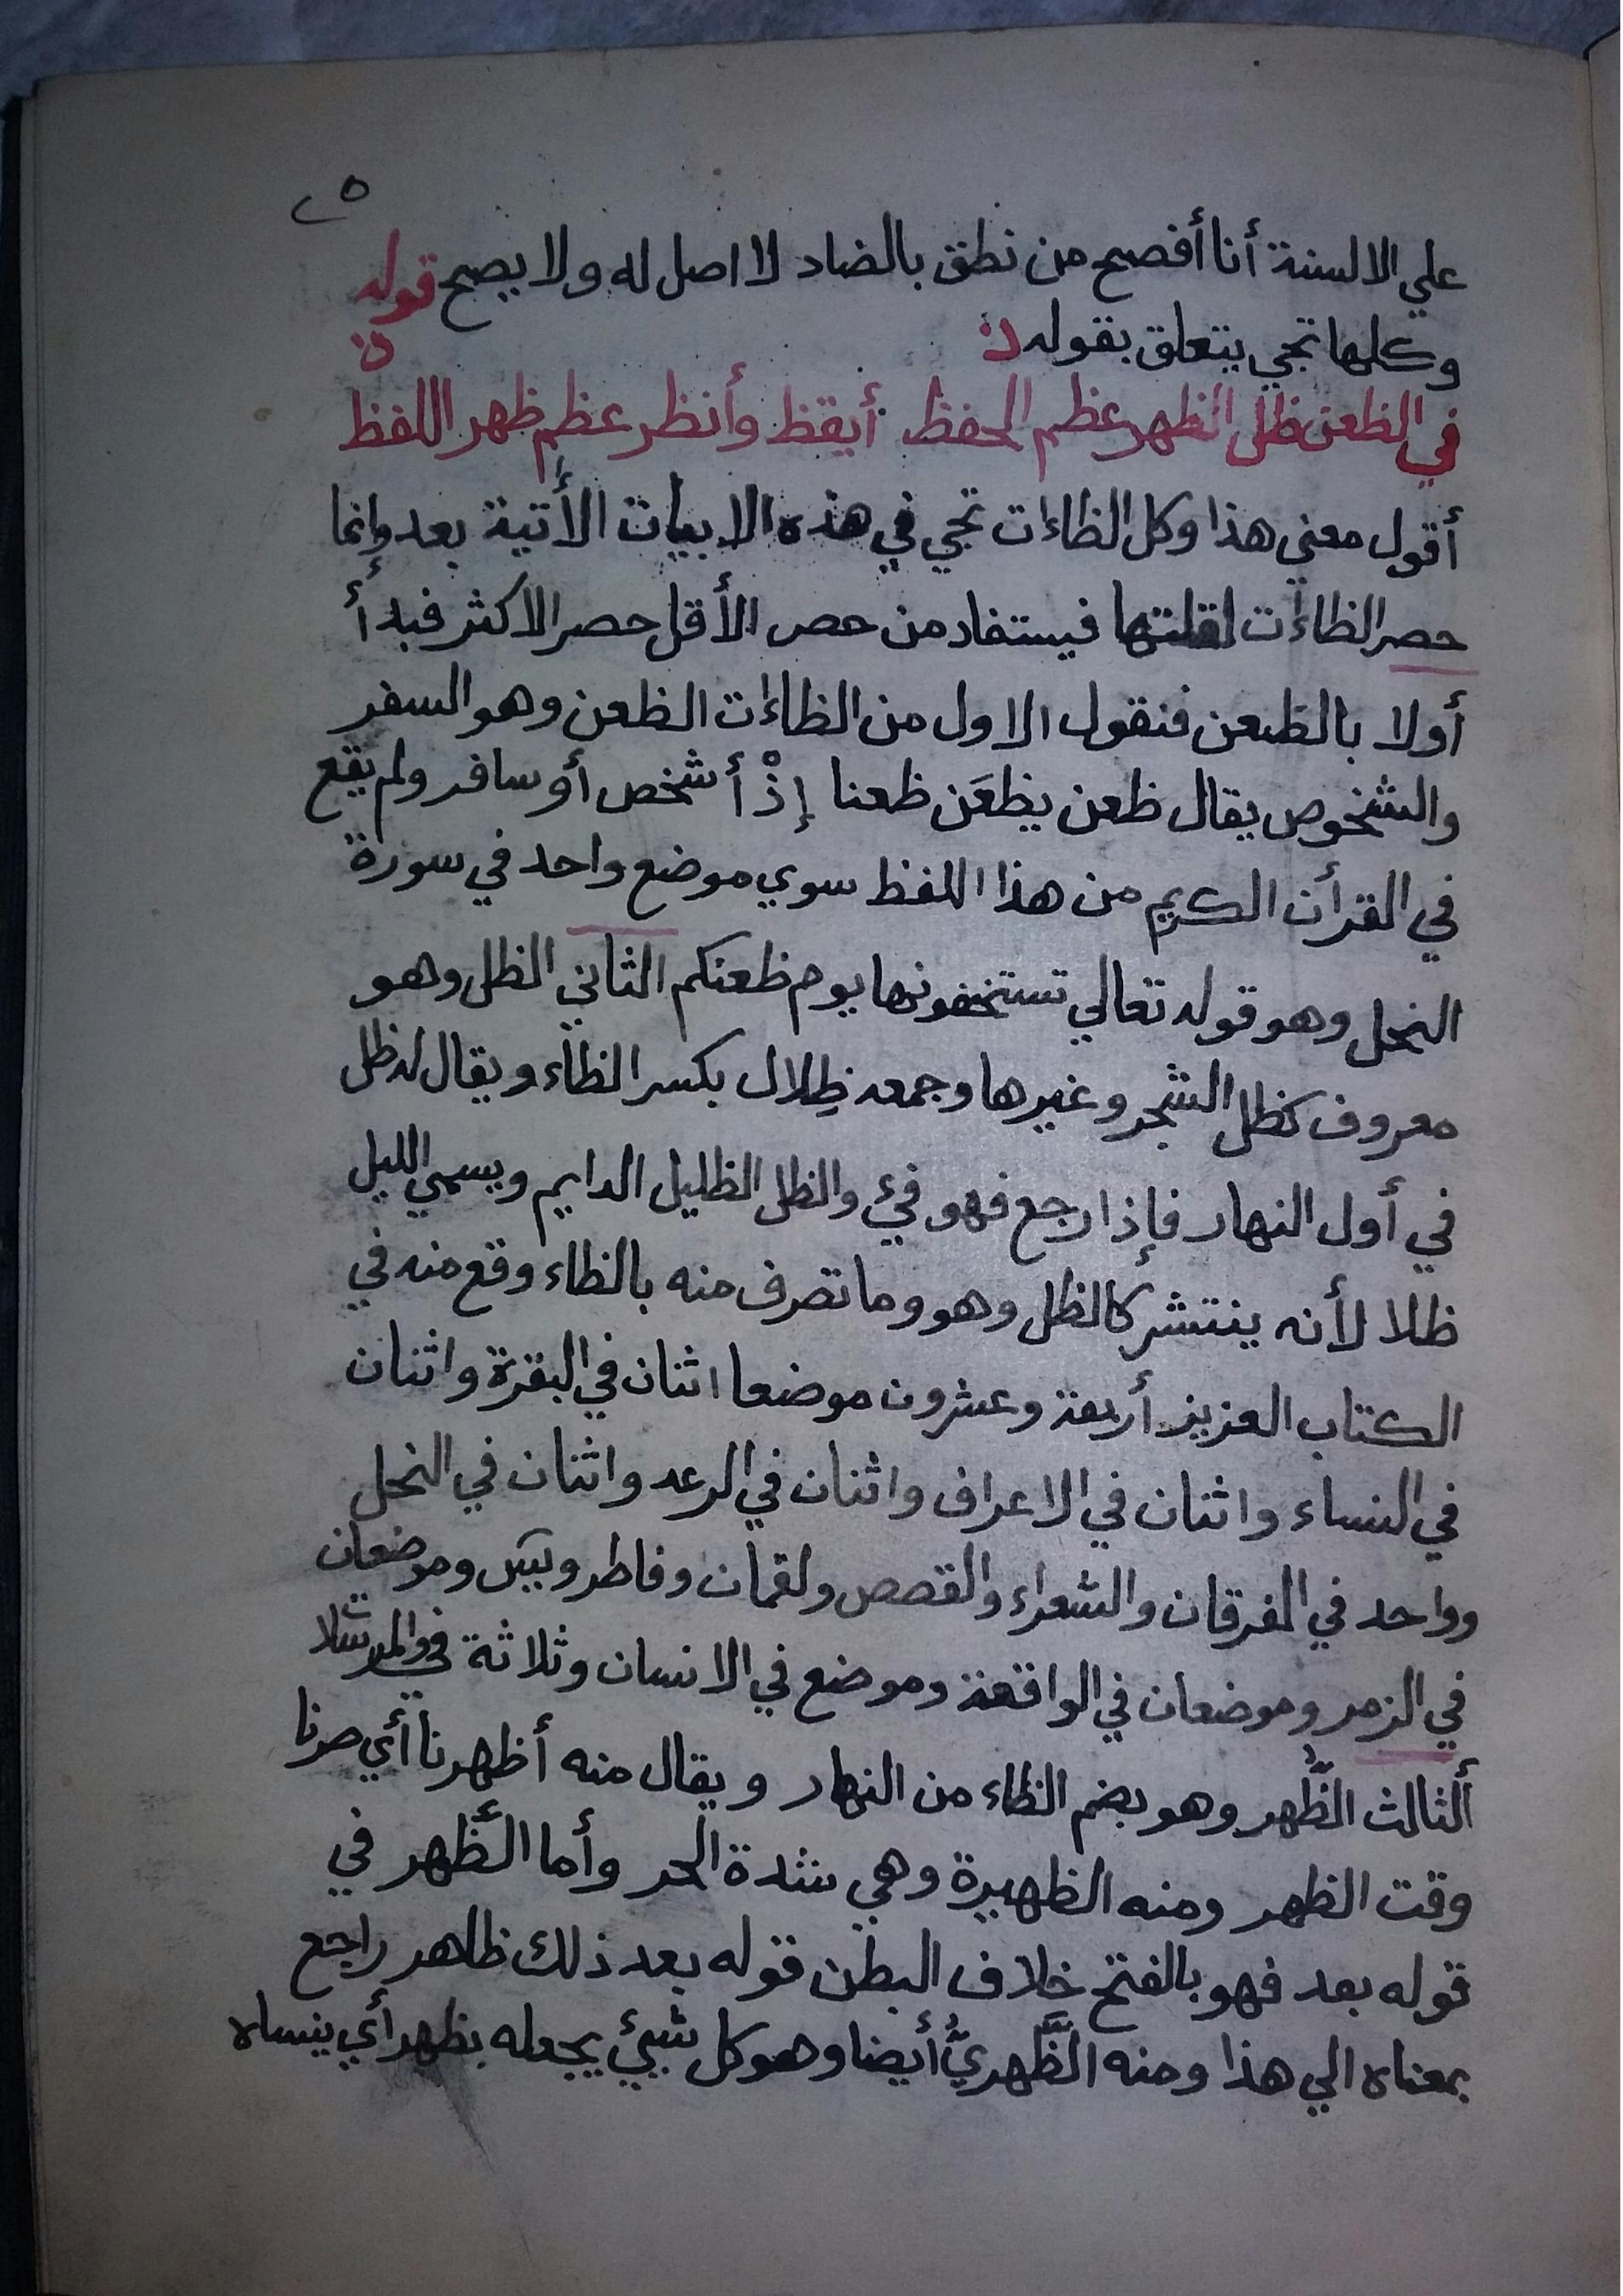 ٢٥
علي الالسنة أنا أفصح من نطق بالضاد لا اصل له ولا يصح قوله
وكلها تجي يتعلق بقوله
في الظعن ظل الظهر عظم الحفظ أيقظ وأنظر عظم ظهر اللفظ
أقول معنى هذا وكل الظاءات تجي في هذه الابيات الأتية بعد وإنما
حصر الظاءات لقلتها فيستفاد من حصر الأقل حصر الاكثر فبدأ
أولا بالظعن فنقول الاول من الظاءات الظعن وهو السفر
والشخوص يقال ظعن يظعَن ظعنا إذْ أشخص أو سافر ولم يقع
في القرأن الكريم من هذا اللفظ سوي موضع واحد في سورة
النحل وهو قوله تعالي تستخفونها يوم ظعنكم الثاني الظل وهو
معروف كظل الشجر وغيرها وجمعه ظِلال بكسر الظاء ويقال له ظل
في أول النهار فإذا رجع فهو فيئ والظل الظليل الدايم ويسمي الليل
ظلا لأنه ينتشر كالظل وهو وما تصرف منه بالظاء وقع منه في
الكتاب العزيز أربعة وعشرون موضعا اثنان في البقرة واثنان
في النساء واثنان في الاعراف واثنان في الرعد واثنان في النحل
وواحد في الفرقان والشعراء والقصص ولقمان وفاطر ويس وموضعان
في الزمر وموضعان في الواقعة وموضع في الانسان وثلاثة في والمرسلات
ألثالث الظُّهر وهو بضم الظاء من النهار ويقال منه أظهرنا أي صرنا
وقت الظهر ومنه الظهيرة وهي شدة الحر وأما الظَّهر في
قوله بعد فهو بالفتح خلاف البطن قوله بعد ذلك ظاهر راجع
بمعناه الي هذا ومنه الظَّهريُّ أيضا وهو كل شيئ يجعله بظهر أي ينساه